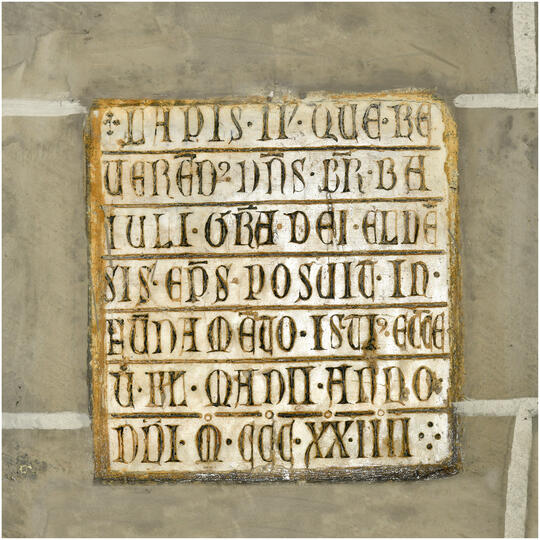 LAPIS·IT'·QUE·RE
UERĒD⁹ DN̄S·FR̄·BA
IULI·GR̄A DEI·ELNĒ
SIS·EP̄S·POSUIT·IN·
FŪDAMĒTO·ISTI⁹ ECC̄E
U·KL·MADII·ANNO·
DN̄I·M̄·CCC·XX·IIII